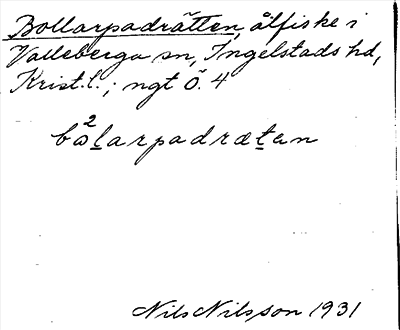 Bollarpadrätten, ålfiske i
Valleberga sn, Ingelstads hd,
Krist. l.; ngt Ö. 4
bω²larpadrætan
Nils Nilsson 1931